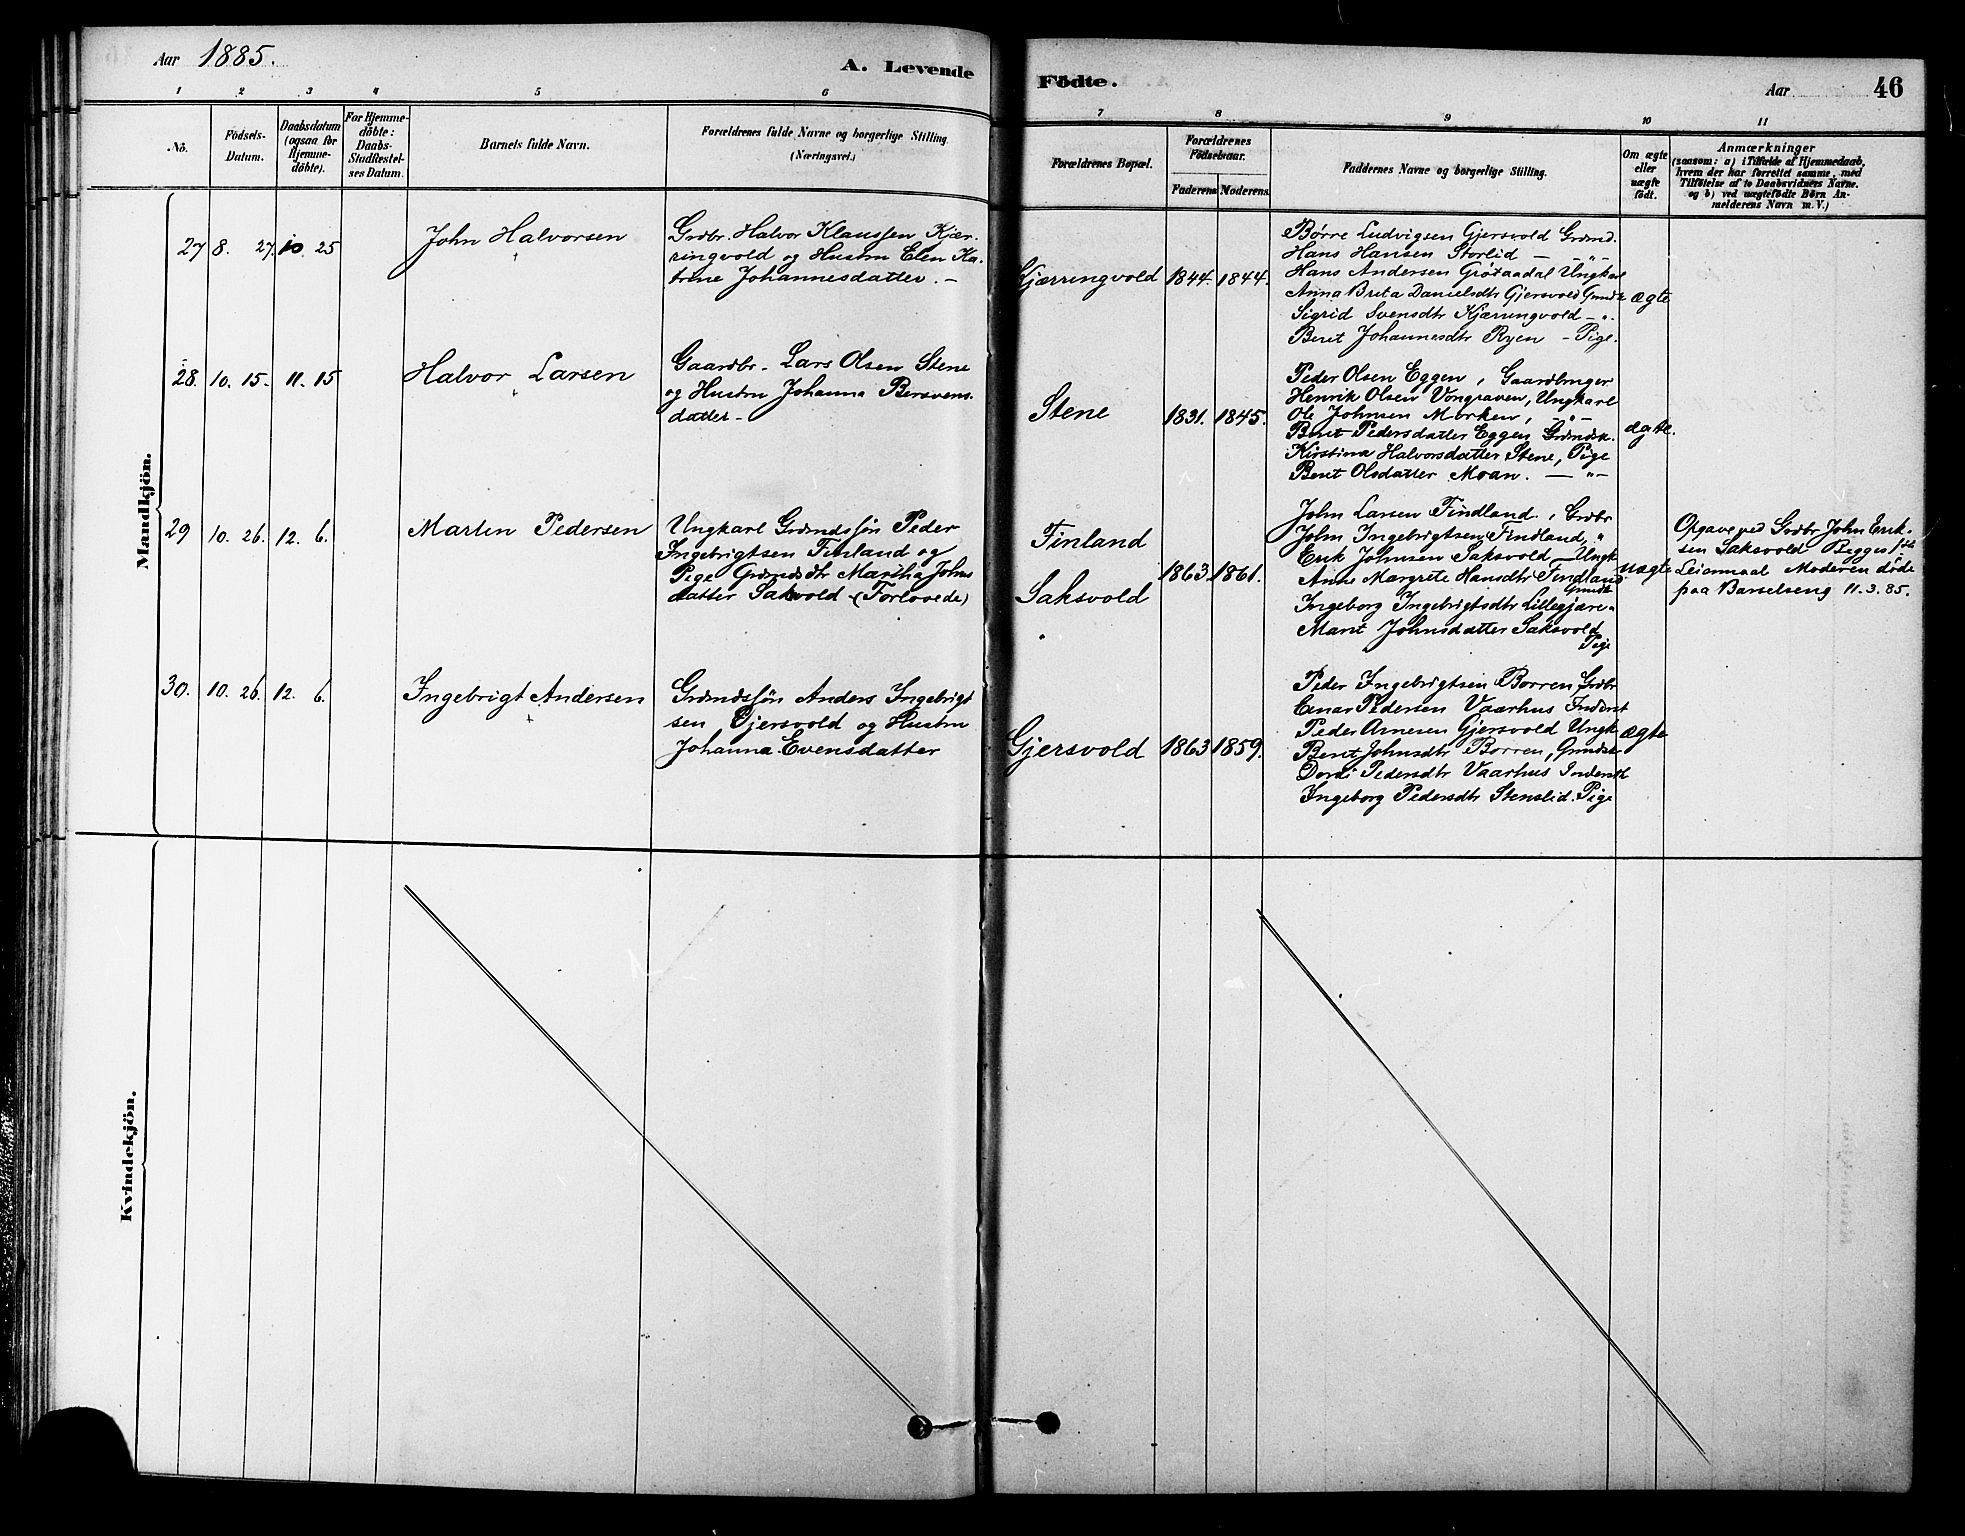 Aar 1885.
A. Levende
1 2 3 4 5 6
No.
Födsels-
Datum.
Daabsdatum
(ogsaa for
Hjemme-
döbte).
For Hjemme-
döbte:
Daabs-
Stadfæstel-
ses Datum.
Barnets fulde Navn.
Forældrenes fulde Navne og borgerlige Stilling
(Næringsvei.)
Mandkjön.
27 8. 27. 10 25
John Halvorsen
Grdbr. Halvor Klaussen Kjær-
ringvold og Hustru Elen Ka-
trine Johannesdatter. -
28. 10. 15. 11. 15
Halvor Larsen
Gaardbr. Lars Olsen Stene
og Hustru Johanna Bersvens-
datter -
29 10. 26. 12. 6.
Martin Pedersen
Ungkarl Grændssjön Peder
Ingebrigtsen Finland og
Pige Grændsdtr Martha Johns
datter Saksvold (Forlovede)
30. 10. 26. 12. 6.
Ingebrigt Andersen
Grændssjön Anders Ingebrigt
sen Gjersvold og Hustru
Johanna Evensdatter
Kvindekjön.
Födte.
Aar 46
7 8 9 10 11
Forældrenes Bopæl.
Forældrenes
Födselsaar.
Faderens Moderens.
Faddernes Navne og borgerlige Stilling.
Om ægte
eller
uægte
födt.
Anmærkninger
(saasom: a) i Tilfælde af Hjemmedaab,
hvem der har forrettet samme, med
Tilföielse af to Daabsvidners Navne.
og b) ved uægtefödte Börn An-
melderens Navn m. V.)
Kjærringvold 1844. 1844.
Børre Ludvigsen Gjersvold Grænd.
Hans Hansen Storlid - " -
Hans Andersen Grötaadal Ungkarl
Anna Brita Danielsdtr Gjersvold
Sigrid Svensdtr Kjærringvold - " -
Berit Johannesdtr Ryen - Pige.
ægte
Stene 1831. 1845.
Peder Olsen Eggen, Gaardbruger
Henrik Olsen Vongraven, Ungkarl
Ole Johnsen Morken, - " -
Berit Pedersdatter Eggen Grændsk.
Kirstina Halvorsdatter Stene, Pige
Berit Olsdatter Moan. - " -
ægte.
Finland
Saksvold
1863. 1861.
John Larsen Findland, Grdbr
John Ingebrigtsen Findland, "
Erik Johnsen Saksvold - Ungk
Anne Margrete Hansdtr Findland
Ingeborg Ingebrigtsdtr Lillegjære "
Marit Johnsdatter Saksvold
Pige
uægte
Opgave ved Grdbr John Erik-
sen Saksvold Begges 1ste
Leiermaal Moderen döde
paa Barselseng 11.3.85.
Gjersvold 1863 1859.
Peder Ingebrigtsen Borren Grdbr
Einar Pedersen Vaarhus Inderst
Peder Arnesen Gjersvold Ungk
Berit Johnsdtr Borren, Grændsk
Dordi Pedersdtr Vaarhus Inderst
Ingeborg Pedersdtr Stenslid. Pige
ægte